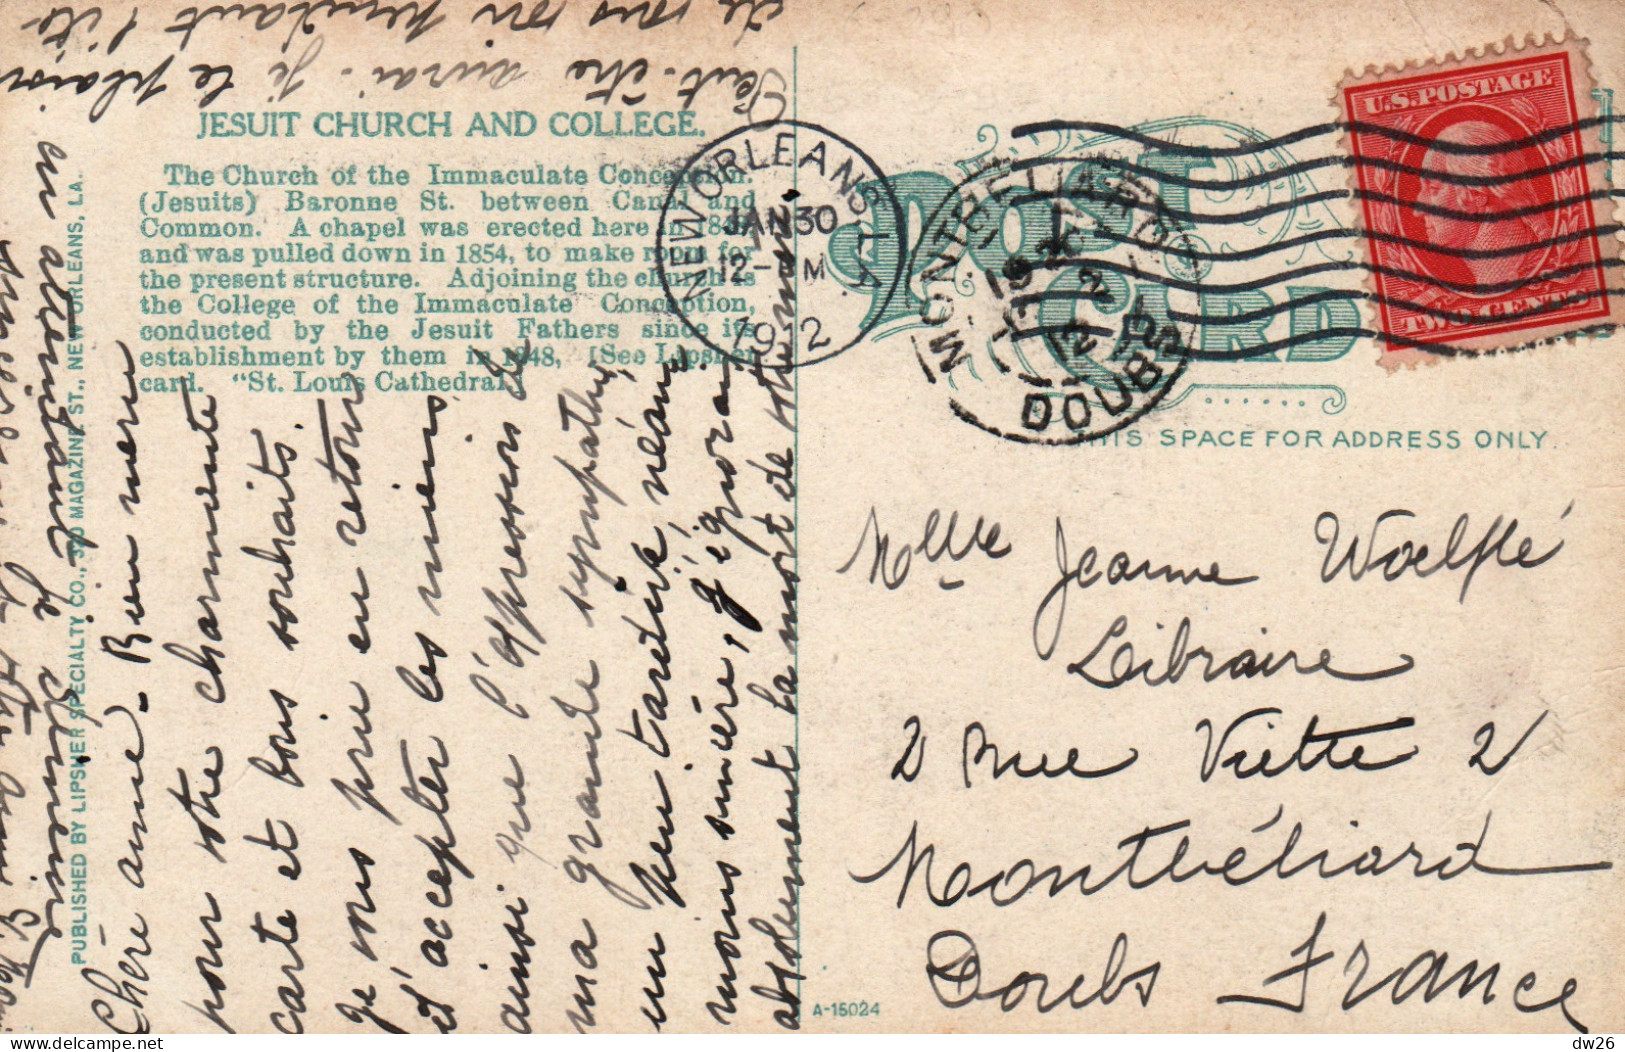 JESUIT CHURCH AND COLLEGE.
The Church of the Immaculate Conception
(Jesuits) Baronne St. between Canal and
Common. A chapel was erected here in 184
and was pulled down in 1854, to make room for
the present structure. Adjoining the church is
the College of the Immaculate Conception,
conducted by the Jesuit Fathers since its
establishment by them in 1848, [See Lipsher
card. "St. Louis Cathedral
PUBLISHED BY LIPSHER SPECIALTY CO., 320 MAGAZINE ST., NEW ORLEANS, LA.
Chère amie - Bien merci
pour votre charmante
carte et bons souhaits.
Je vous prie en retour
d'accepter les miens
ainsi que l'expression de
ma grande sympathie,
un peu tardive, néan-
moins sincère, j'ignorais
absolument la mort de votre
en attendant je termine
Peut-être aurai-je le plaisir
de vous voir pendant l'été
NEW ORLEANS, LA
JAN 30
12- M
1912
MONTBELIARD
DOUBS
POST CARD
U.S. POSTAGE
TWO CENTS
THIS SPACE FOR ADDRESS ONLY.
Mlle Jeanne Woelflé
Libraire
2 Rue Viette 2
Montbéliard
Doubs France
A-15024
dw26